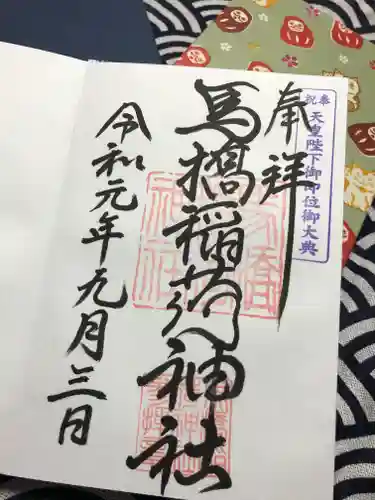 奉祝
天皇陛下御即位御大典
奉祥
馬橋稲荷神社
令和元年九月三日